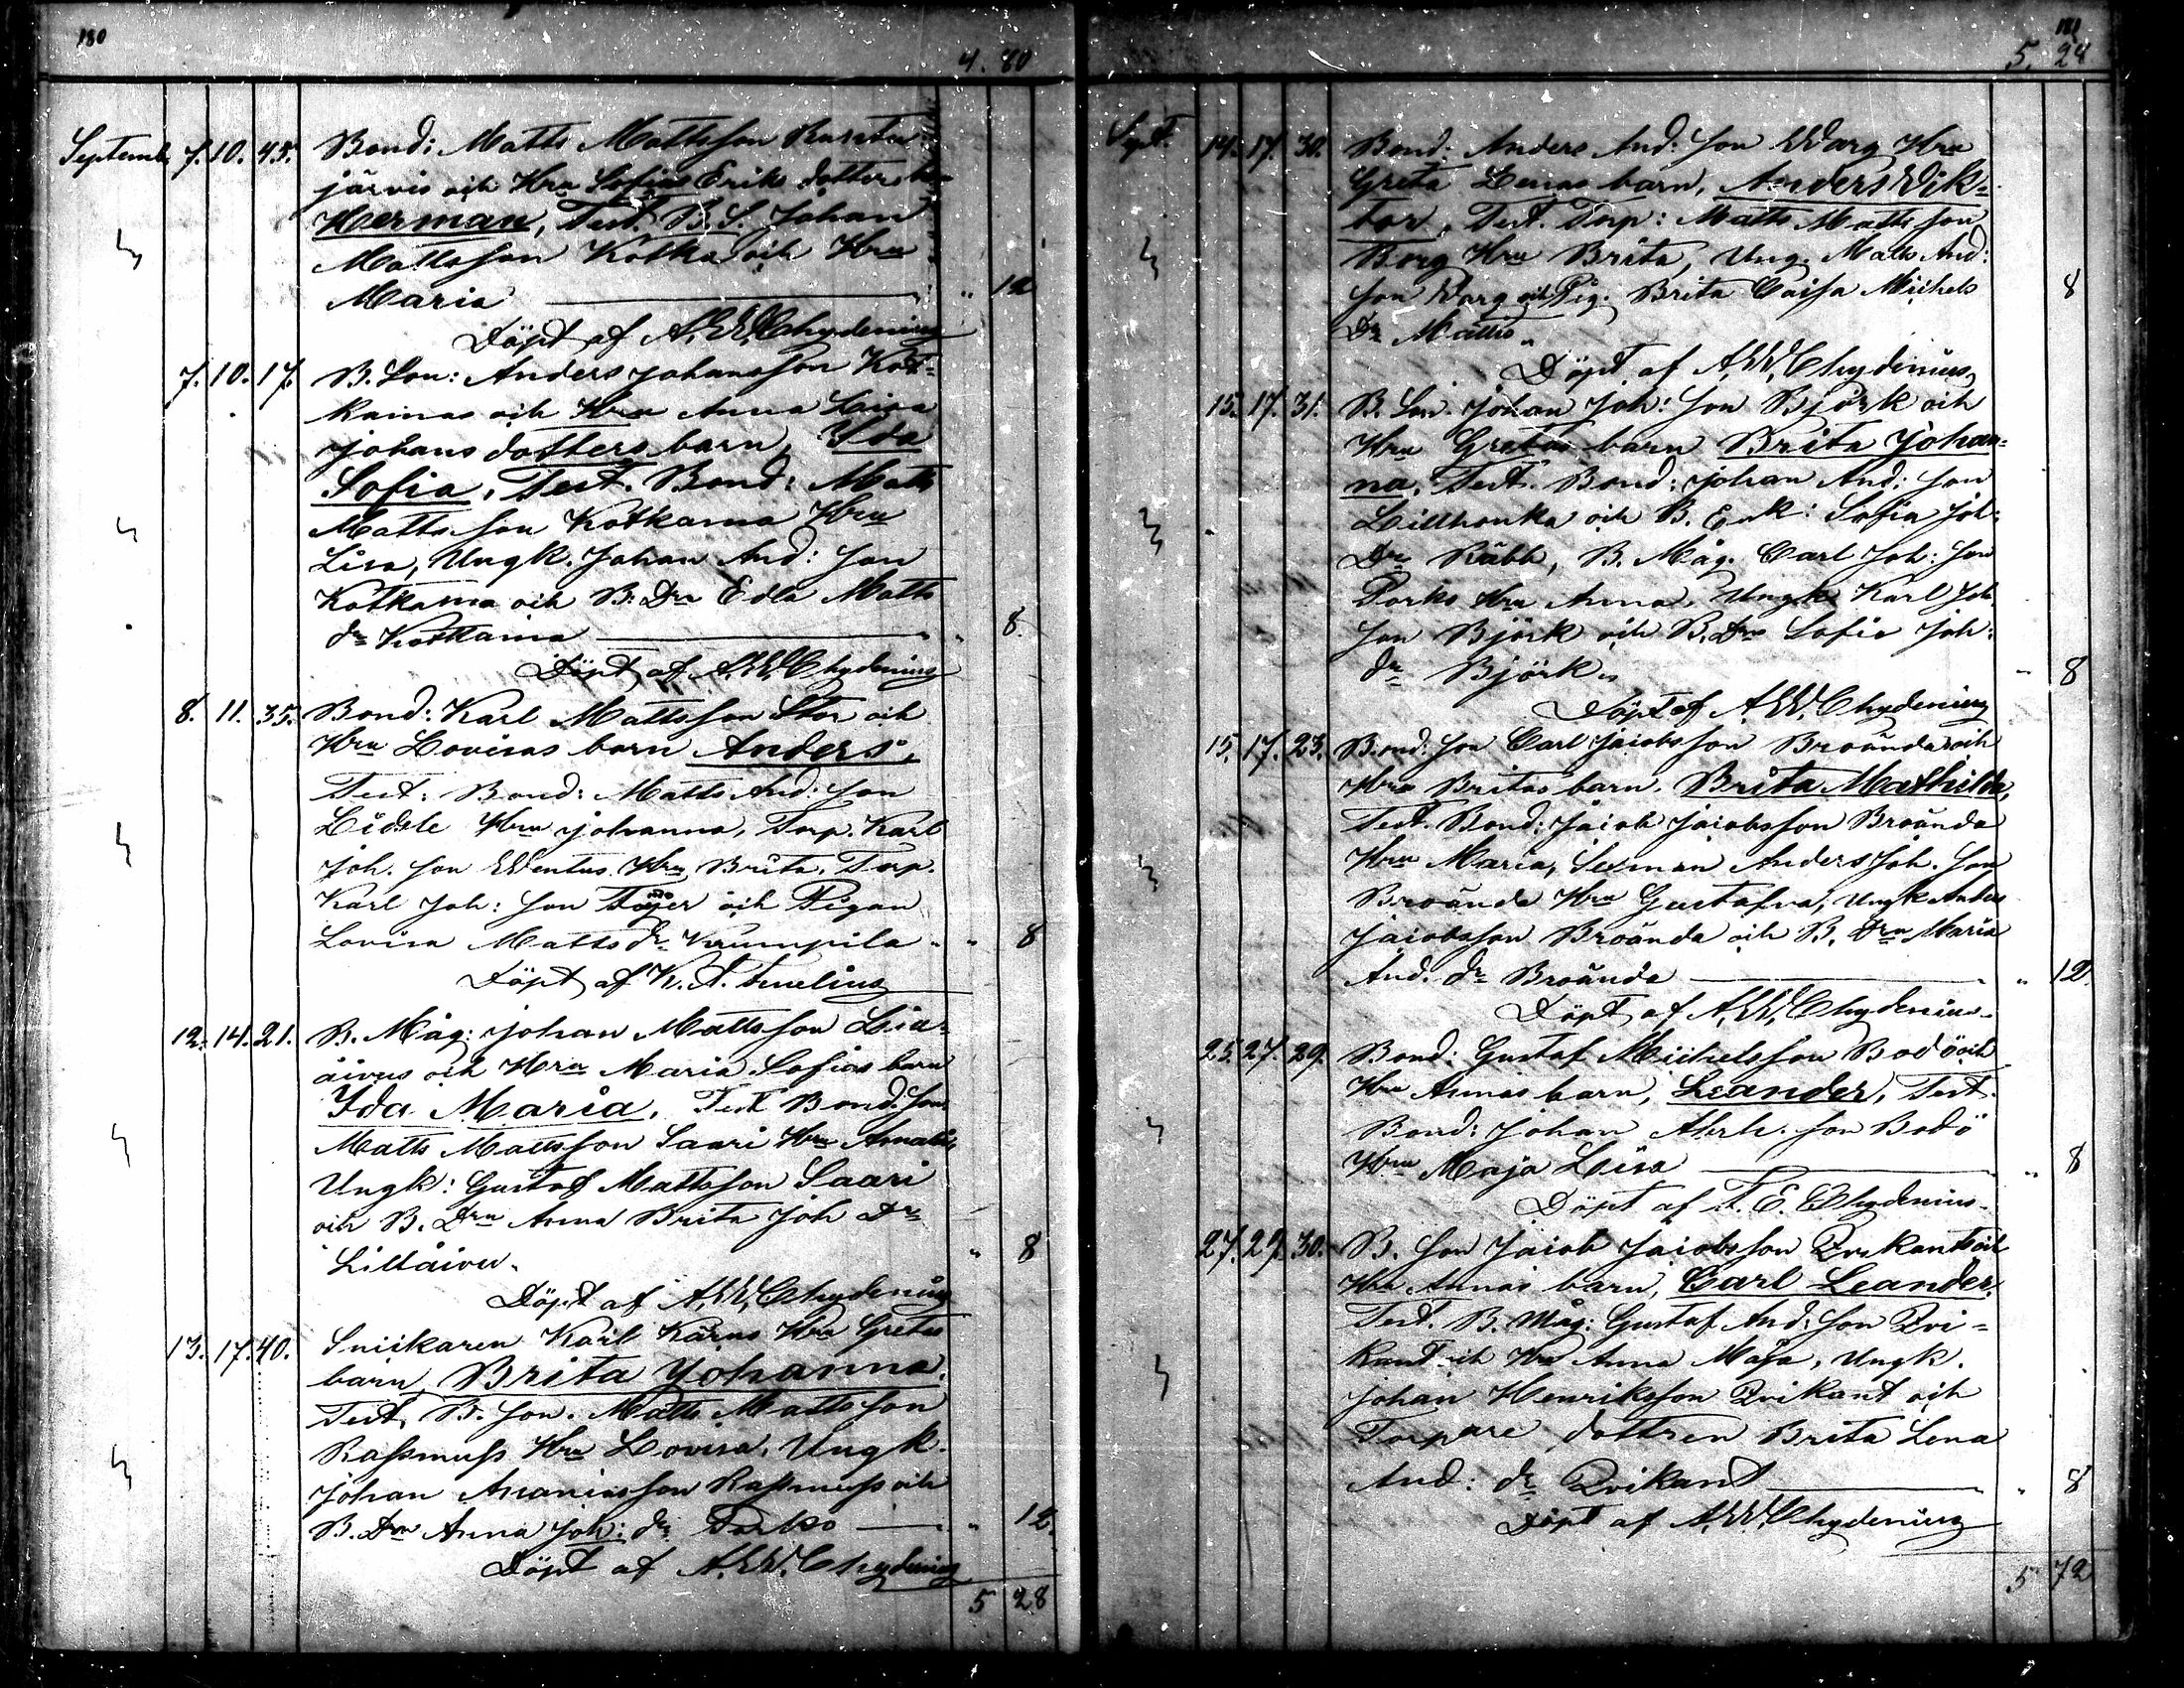 180
4. 80
Septemb. 7. 10. 45. Bond: Matts Mattsson
järvis och Hru Sofias Eriks dotters
Herman, Test. B. S. Johan
Mattsson Kotka och Hru
Maria " 12
Döpt af A. W. Chydenius
7. 10. 17. B. Son: Anders Johansson Kot-
kamas och Hru Anna Lisa
Johans dotters barn, Ida
Sofia, Test. Bond: Matts
Mattsson Kotkama Hru
Lisa, Ungk. Johan And: son
Kotkama och B. Drn Edla Matts
dr Kotkama " 8.
Döpt af A. W. Chydenius
8. 11. 35. Bond: Karl Mattsson Stor och
Hru Lovisas barn Anders,
Test: Bond: Matts And: son
Hru Johanna, Torp. Karl
Joh. son Wentus Hru Brita, Torp.
Karl Joh: son och Pigan
Lovisa Matts dr Krumpila " 8
Döpt af K. A.
12. 14. 21. B. Måg: Johan Mattsson Lill-
äivus och Hru Maria Sofias barn
Ida Maria, Test Bond. son
Matts Mattsson Saari Hru Amalia,
Ungk: Gustaf Mattsson Saari
och B. Drn Anna Brita Joh Dr
Lilläivu. " 8
Döpt af A. W. Chydenius
13. 17. 40. Snickaren Karl Kärus Hru Gretas
barn Brita Johanna,
Test, B. Son. Matts Mattsson
Rassmuss Hru Lovisa, Ungk.
Johan Ananiasson Rassmuss och
B. Drn Anna Joh: dr Torko " 12.
Döpt af A. W. Chydenius
5 28
181
5. 28
Sept. 14. 17. 30. Bond: Anders And: son Warg Hru
Greta Lenas barn, Anders Wik-
tor, Test. Torp: Matts Mattsson
Borg Hru Brita, Ung. Matts And:
son Warg och Pig. Brita Caisa Michels 8
Dr Mattis.
Döpt af A. W. Chydenius
15. 17. 31. B. Son. Johan Joh: son Björk och
Hru Gretas barn Brita Johan-
na, Test. Bond: Johan And: son
Lillhonka och B. Enk: Sofia Joh:
Dr Räbb, B. Måg. Carl Joh: son
Porko Hru Anna, Ungk Karl Joh.
son Björk och B. Drn Sofia Joh:
dr Björk. " 8
Döpt af A. W. Chydenius
15. 17. 23. Bond: son Carl Jacobsson Broända och
Hru Britas barn. Brita Mathilda,
Test. Bond: Jacob Jacobsson Broända
Hru Maria, Sexman Anders Joh. son
Broända Hru Gustafva, Ungk Anders
Jacobsson Broända och B. Drn Maria
And. dr Broända " 12.
Döpt af A. W. Chydenius.
25. 27. 29. Bond: Gustaf Michelsson Bodö och
Hru Annas barn, Leander, Test.
Bond: Johan Abrh. son Bodö
Hru Maja Lisa " 8
Döpt af A. E. Chydenius.
27. 29. 30. B. son Jacob Jacobsson Qvikants och
Hru Annas barn, Carl Leander,
Test. B. Måg: Gustaf And: son Qvi-
kant och Hru Anna Maja, Ungk.
Johan Henriksson Qvikant och
Torpare dottren Brita Lena
And: dr Qvikant " 8
Döpt af A. W. Chydenius
5 72